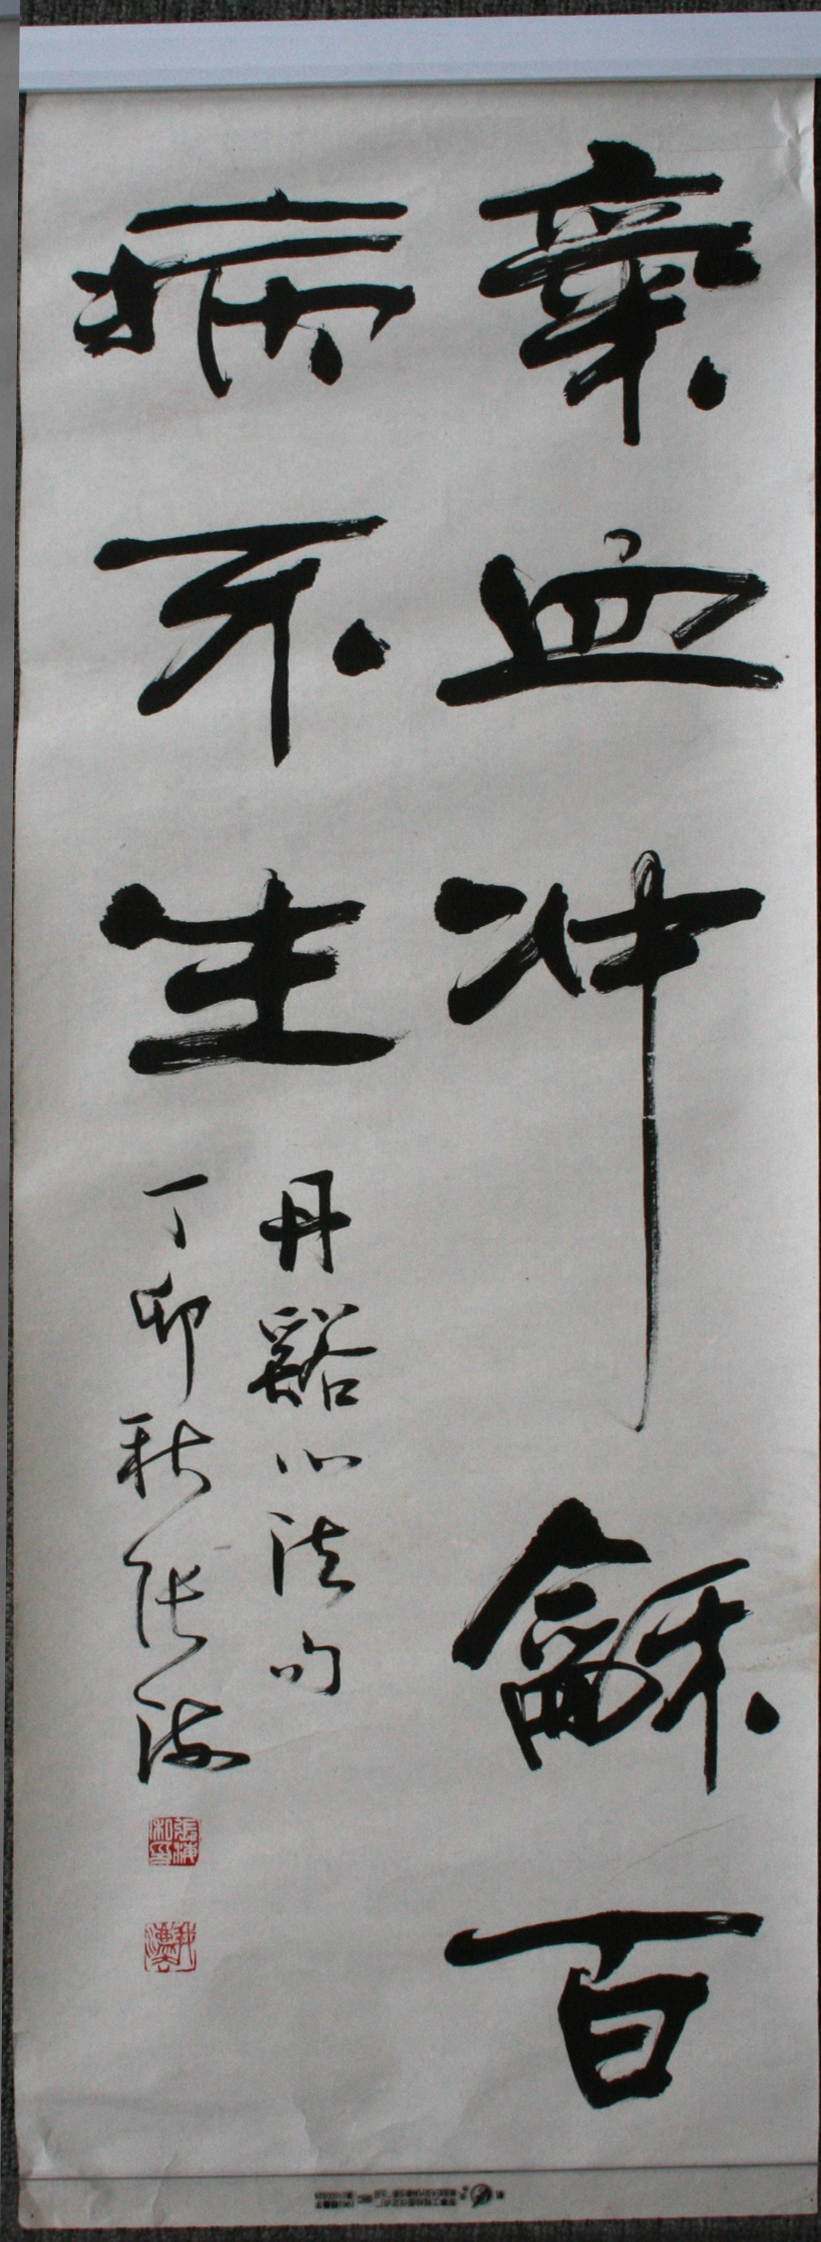 氣血冲龢百
病不生
丹谿心法句
丁卯秋張海